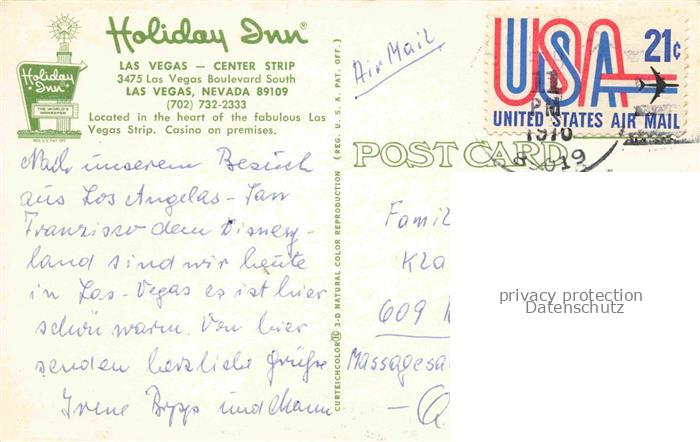 Holiday Inn®
LAS VEGAS — CENTER STRIP
3475 Las Vegas Boulevard South
LAS VEGAS, NEVADA 89109
(702) 732-2333
Located in the heart of the fabulous Las
Vegas Strip. Casino on premises.
Holiday
Inn
THE WORLD'S
INNKEEPER
REG. U.S. PAT. OFF.
Nach unserem Besuch
aus Los Angelas - San
Franzisco dem Disney-
land sind wir heute
in Las-Vegas es ist hier
schön warm. Von hier
senden herzliche Grüße
Irene und Mann
CURTEICHCOLOR® 3-D NATURAL COLOR REPRODUCTION (REG. U.S.A. PAT. OFF.)
Air Mail
POST CARD
USA 21¢
UNITED STATES AIR MAIL
11
PM
1976
Famil
Kla
609
Massagesa
privacy protection
Datenschutz